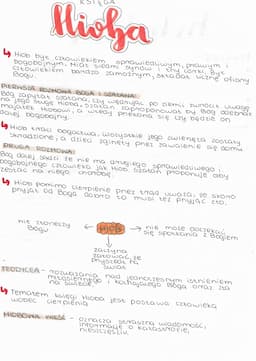 KSIĘGA
Hioba
↳ Hiob był człowiekiem sprawiedliwym, prawym i
bogobojnym. Miał siedmiu synów i trzy córki. Był
człowiekiem bardzo zamożnym, składał liczne ofiary
Bogu.
PIERWSZA ROZMOWA BOGA I SZATANA:
Bóg zapytał szatana, czy wędrując po ziemi zwrócił uwagę
na jego sługę Hioba. Szatan zaproponował by Bóg odebrał
majątek Hiobowi, a wtedy przekona się czy będzie on
dalej pobogobojny.
↳ Hiob traci bogactwa, wszystkie jego zwierzęta zostały
skradzione, a dzieci zginęły przez zawalenie się domu
DRUGA ROZMOWA:
Bóg dalej mówi że nie ma drugiego sprawiedliwego i
bogobojnego człowieka jak Hiob. Szatan proponuje aby
zesłać na niego chorobę.
↳ Hiob pomimo cierpienie przez trąd uważa, że skoro
przyjął od Boga dobro to musi też przyjąć zło.
nie złorzeczy
Bogu
HIOB
nie może doczekać
się spotkania z Bogiem
zaczyna
żałować, że
przyszedł na
świat
TEODYCEA - rozważania nad jednoczesnym istnieniem
miłosiernego i kochającego Boga oraz zła
na świecie
↳ Tematem księgi Hioba jest postawa człowieka
wobec cierpienia
HIOBOWA WIEŚĆ - oznacza straszną wiadomość,
informację o katastrofie,
nieszczęściu.